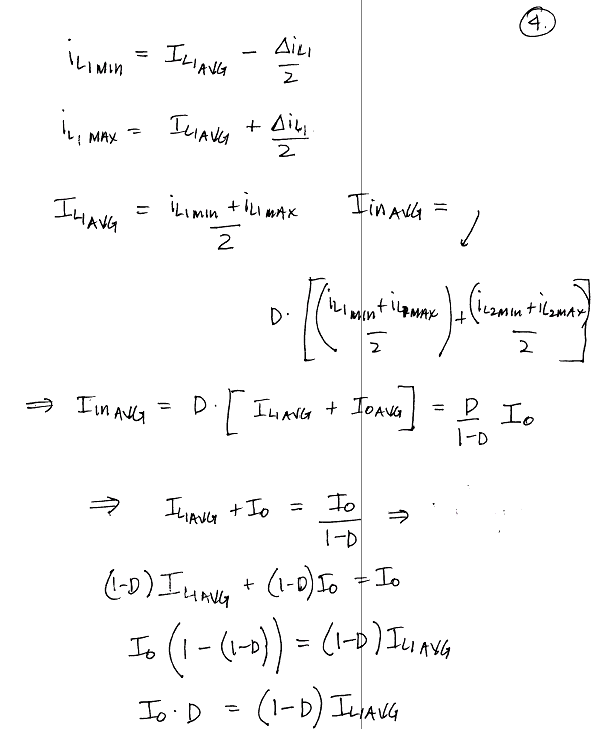 4.
i_L1MIN = I_L1AVG - Δi_L1/2
i_L1MAX = I_L1AVG + Δi_L1/2
I_L1AVG = (i_L1MIN + i_L1MAX)/2    I_inAVG = ↙
D · [((i_L1MIN + i_L1MAX)/2) + ((i_L2MIN + i_L2MAX)/2)]
⇒ I_inAVG = D · [I_L1AVG + I_OAVG] = D/(1-D) I_O
⇒ I_L1AVG + I_O = I_O/(1-D) ⇒
(1-D) I_L1AVG + (1-D) I_O = I_O
I_O (1 - (1-D)) = (1-D) I_L1AVG
I_O · D = (1-D) I_L1AVG